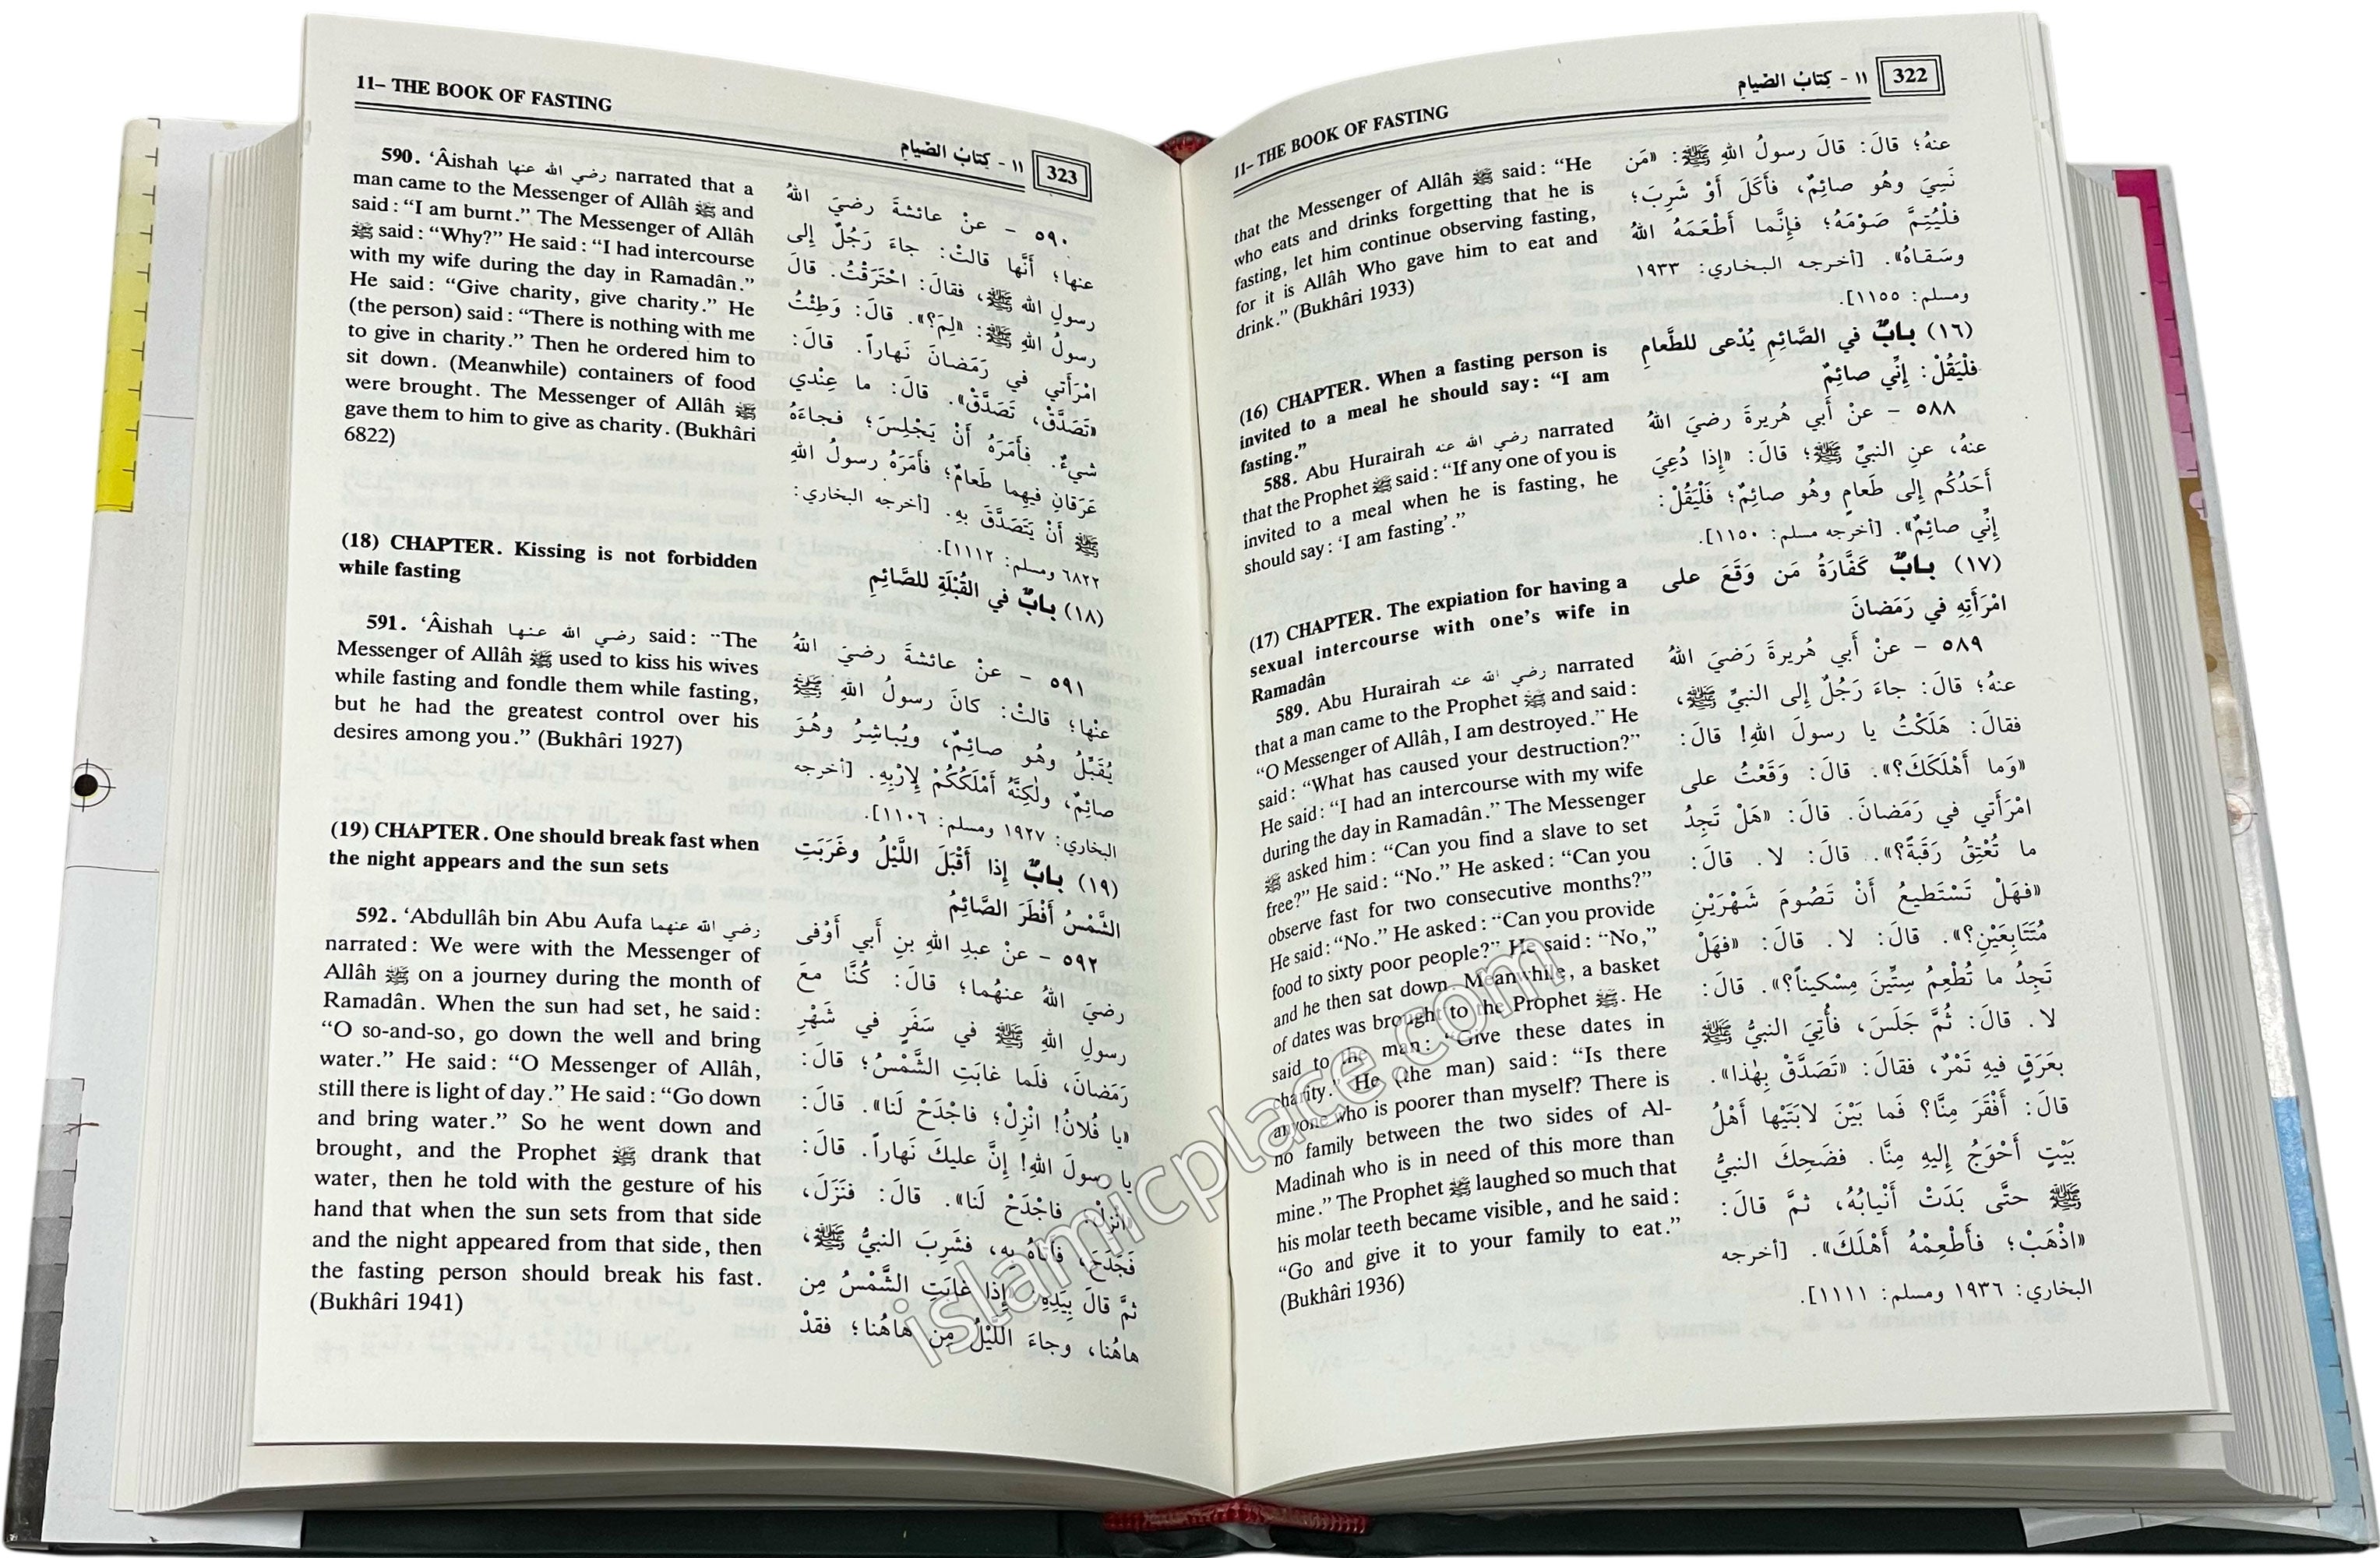 11– THE BOOK OF FASTING
١١ - كِتابُ الصِّيامِ
322
that the Messenger of Allâh ﷺ said: “He
who eats and drinks forgetting that he is
fasting, let him continue observing fasting,
for it is Allâh Who gave him to eat and
drink.” (Bukhâri 1933)
(16) CHAPTER. When a fasting person is
invited to a meal he should say: “I am
fasting.”
588. Abu Hurairah رضي الله عنه narrated
that the Prophet ﷺ said: “If any one of you is
invited to a meal when he is fasting, he
should say: ‘I am fasting’.”
(17) CHAPTER. The expiation for having a
sexual intercourse with one’s wife in
Ramadân
589. Abu Hurairah رضي الله عنه narrated
that a man came to the Prophet ﷺ and said:
“O Messenger of Allâh, I am destroyed.” He
said: “What has caused your destruction?”
He said: “I had an intercourse with my wife
during the day in Ramadân.” The Messenger
ﷺ asked him: “Can you find a slave to set
free?” He said: “No.” He asked: “Can you
observe fast for two consecutive months?”
He said: “No.” He asked: “Can you provide
food to sixty poor people?” He said: “No,”
and he then sat down. Meanwhile, a basket
of dates was brought to the Prophet ﷺ. He
said to the man: “Give these dates in
charity.” He (the man) said: “Is there
anyone who is poorer than myself? There is
no family between the two sides of Al-
Madinah who is in need of this more than
mine.” The Prophet ﷺ laughed so much that
his molar teeth became visible, and he said:
“Go and give it to your family to eat.”
(Bukhâri 1936)
عنهُ؛ قالَ: قالَ رسولُ اللهِ ﷺ: «مَن
نَسِيَ وهُو صائِمٌ، فأَكَلَ أَوْ شَرِبَ؛
فلْيُتِمَّ صَوْمَهُ؛ فإِنَّما أَطْعَمَهُ اللهُ
وسَقاهُ». [أخرجه البخاري: ١٩٣٣
ومسلم: ١١٥٥].
(١٦) بابٌ في الصَّائِمِ يُدْعى للطَّعامِ
فلْيَقُلْ: إِنِّي صائِمٌ
٥٨٨ - عنْ أَبي هُريرةَ رضيَ اللهُ
عنهُ، عنِ النبيِّ ﷺ؛ قالَ: «إِذا دُعِيَ
أَحَدُكُم إِلى طَعامٍ وهُو صائِمٌ؛ فَلْيَقُلْ:
إِنِّي صائِمٌ». [أخرجه مسلم: ١١٥٠].
(١٧) بابٌ كَفَّارَةُ مَن وَقَعَ على
امْرَأَتِهِ في رَمَضانَ
٥٨٩ - عنْ أَبي هُريرةَ رَضيَ اللهُ
عنهُ؛ قالَ: جاءَ رَجُلٌ إِلى النبيِّ ﷺ،
فقالَ: هَلَكْتُ يا رسولَ اللهِ! قالَ:
«وَما أَهْلَكَكَ؟». قالَ: وَقَعْتُ على
امْرَأَتي في رَمَضانَ. قالَ: «هَلْ تَجِدُ
ما تُعْتِقُ رَقَبَةً؟». قالَ: لا. قالَ:
«فهَلْ تَسْتَطيعُ أَنْ تَصُومَ شَهْرَيْنِ
مُتَتابِعَيْنِ؟». قالَ: لا. قالَ: «فهَلْ
تَجِدُ ما تُطْعِمُ سِتِّينَ مِسْكيناً؟». قالَ:
لا. قالَ: ثُمَّ جَلَسَ، فأُتِيَ النبيُّ ﷺ
بعَرَقٍ فيهِ تَمْرٌ، فقالَ: «تَصَدَّقْ بِهٰذا».
قالَ: أَفْقَرَ مِنَّا؟ فَما بَيْنَ لابَتَيْها أَهْلُ
بَيْتٍ أَحْوَجُ إِليهِ مِنَّا. فضَحِكَ النبيُّ
ﷺ حتَّى بَدَتْ أَنْيابُهُ، ثمَّ قالَ:
«اذْهَبْ؛ فأَطْعِمْهُ أَهْلَكَ». [أخرجه
البخاري: ١٩٣٦ ومسلم: ١١١١].
11– THE BOOK OF FASTING
١١ - كِتابُ الصِّيامِ
323
590. ‘Âishah رضي الله عنها narrated that a
man came to the Messenger of Allâh ﷺ and
said: “I am burnt.” The Messenger of Allâh
ﷺ said: “Why?” He said: “I had intercourse
with my wife during the day in Ramadân.”
He said: “Give charity, give charity.” He
(the person) said: “There is nothing with me
to give in charity.” Then he ordered him to
sit down. (Meanwhile) containers of food
were brought. The Messenger of Allâh ﷺ
gave them to him to give as charity. (Bukhâri
6822)
(18) CHAPTER. Kissing is not forbidden
while fasting
591. ‘Âishah رضي الله عنها said: “The
Messenger of Allâh ﷺ used to kiss his wives
while fasting and fondle them while fasting,
but he had the greatest control over his
desires among you.” (Bukhâri 1927)
(19) CHAPTER. One should break fast when
the night appears and the sun sets
592. ‘Abdullâh bin Abu Aufa رضي الله عنهما
narrated: We were with the Messenger of
Allâh ﷺ on a journey during the month of
Ramadân. When the sun had set, he said:
“O so-and-so, go down the well and bring
water.” He said: “O Messenger of Allâh,
still there is light of day.” He said: “Go down
and bring water.” So he went down and
brought, and the Prophet ﷺ drank that
water, then he told with the gesture of his
hand that when the sun sets from that side
and the night appeared from that side, then
the fasting person should break his fast.
(Bukhâri 1941)
٥٩٠ - عنْ عائشةَ رضيَ اللهُ
عنها؛ أَنَّها قالتْ: جاءَ رَجُلٌ إِلى
رسولِ اللهِ ﷺ، فقالَ: احْتَرَقْتُ. قالَ
رسولُ اللهِ ﷺ: «لِمَ؟». قالَ: وَطِئْتُ
امْرَأَتي في رَمَضانَ نَهاراً. قالَ:
«تَصَدَّقْ، تَصَدَّقْ». قالَ: ما عِنْدي
شيءٌ. فأَمَرَهُ أَنْ يَجْلِسَ؛ فجاءَهُ
عَرَقانِ فيهِما طَعامٌ؛ فأَمَرَهُ رسولُ اللهِ
ﷺ أَنْ يَتَصَدَّقَ بِهِ. [أخرجه البخاري:
٦٨٢٢ ومسلم: ١١١٢].
(١٨) بابٌ في القُبْلَةِ للصَّائِمِ
٥٩١ - عنْ عائشةَ رضيَ اللهُ
عنْها؛ قالتْ: كانَ رسولُ اللهِ ﷺ
يُقَبِّلُ وهُو صائِمٌ، ويُباشِرُ وهُوَ
صائِمٌ، ولٰكِنَّهُ أَمْلَكُكُمْ لإِرْبِهِ. [أخرجه
البخاري: ١٩٢٧ ومسلم: ١١٠٦].
(١٩) بابٌ إِذا أَقْبَلَ اللَّيْلُ وغَرَبَتِ
الشَّمْسُ أَفْطَرَ الصَّائِمُ
٥٩٢ - عنْ عبدِ اللهِ بنِ أَبي أَوْفى
رضيَ اللهُ عنهُما؛ قالَ: كُنَّا معَ
رسولِ اللهِ ﷺ في سَفَرٍ في شَهْرِ
رَمَضانَ، فلَما غابَتِ الشَّمْسُ؛ قالَ:
«يا فُلانُ! انْزِلْ؛ فاجْدَحْ لَنا». قالَ:
يا رسولَ اللهِ! إِنَّ عليكَ نَهاراً. قالَ:
«انْزِلْ؛ فاجْدَحْ لَنا». قالَ: فنَزَلَ،
فجَدَحَ، فأَتاهُ بِهِ، فشَرِبَ النبيُّ ﷺ،
ثمَّ قالَ بيَدِهِ: «إِذا غابَتِ الشَّمْسُ مِن
هاهُنا، وجاءَ اللَّيْلُ مِن هاهُنا؛ فقدْ
islamicplace.com